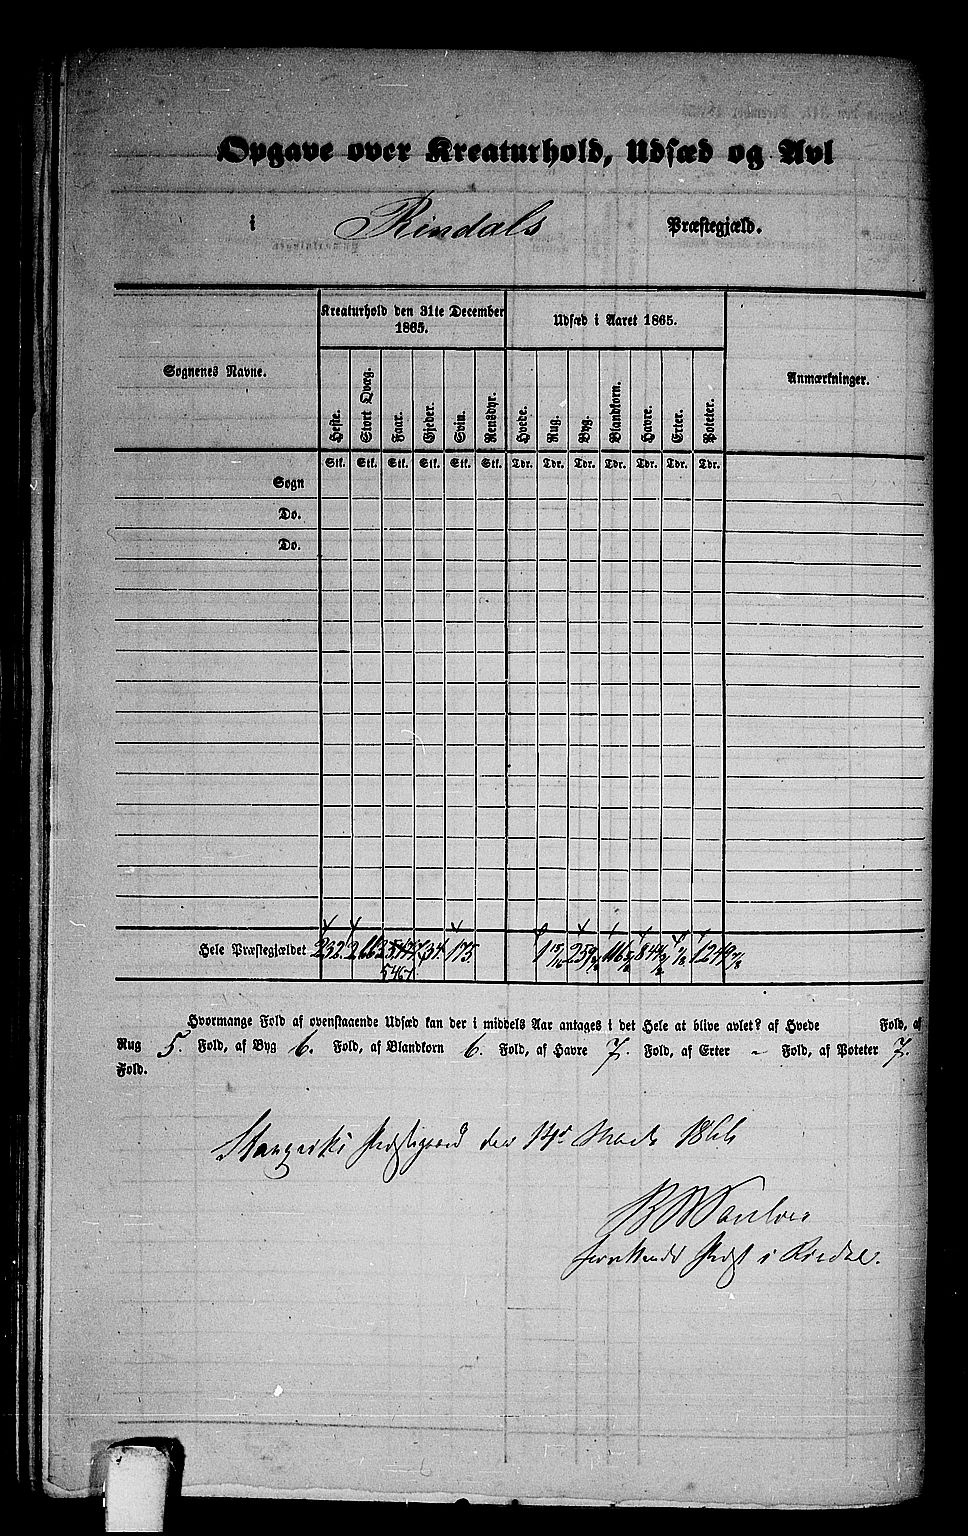 Opgave over Kreaturhold, Udsæd og Avl
i Rindals Præstegjæld.
Sognenes Navne.
Kreaturhold den 31te December 1865.
Udsæd i Aaret 1865.
Anmærkninger.
Heste. Stort Qvæg. Faar. Gjeder. Svin. Rensdyr. Hvede. Rug. Byg. Blandkorn. Havre. Erter. Poteter.
Stk. Stk. Stk. Stk. Stk. Stk. Tdr. Tdr. Tdr. Tdr. Tdr. Tdr. Tdr.
Sogn
Do.
Do.
Hele Præstegjældet 232. 175
5467
Hvormange Fold af ovenstaaende Udsæd kan der i middels Aar antages i det Hele at blive avlet? af Hvede Fold, af
Rug 5. Fold, af Byg 6. Fold, af Blandkorn 6. Fold, af Havre 7. Fold, af Erter - Fold, af Poteter 7.
Fold.
Stangviks Præstegaard den Marts 1866
Præst i Rindal.